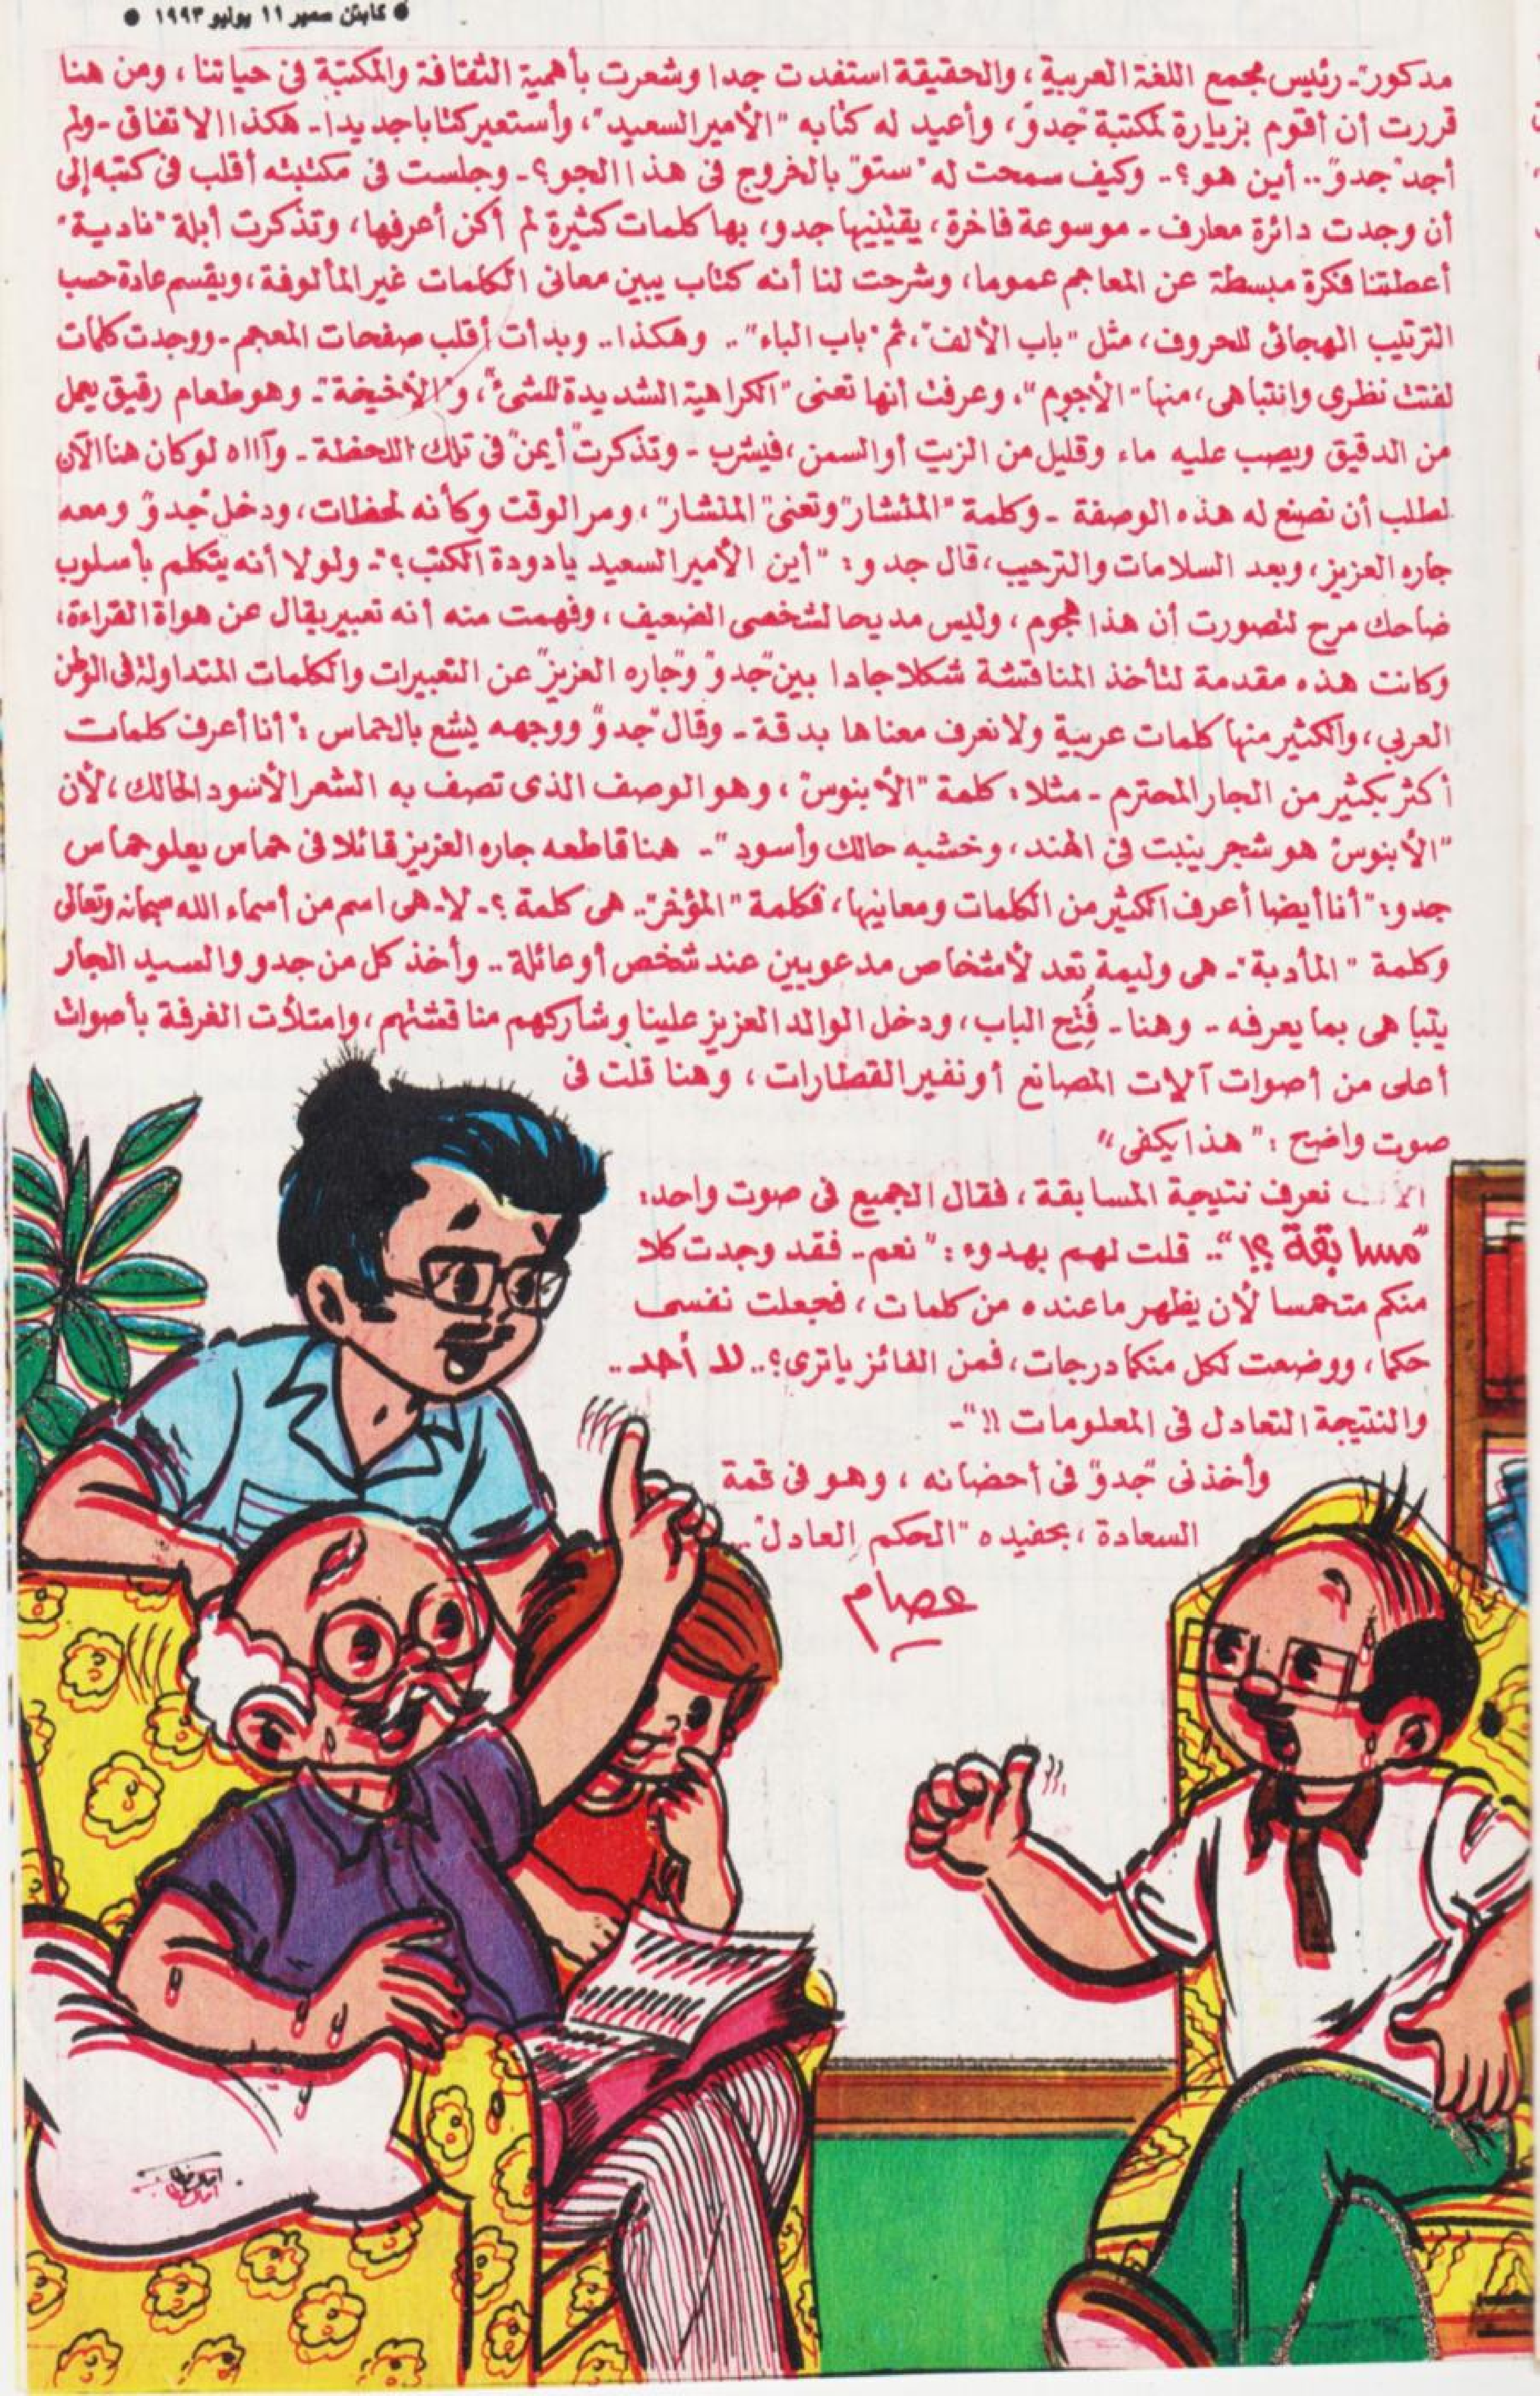 ● كابتن سمير ١١ يوليو ١٩٩٣ ●
مدكور"ـ رئيس مجمع اللغة العربية، والحقيقة استفدت جدا وشعرت بأهمية الثقافة والمكتبة فى حياتنا، ومن هنا
قررت أن أقوم بزيارة لمكتبة "جدو"، وأعيد له كتابه "الأمير السعيد"، وأستعير كتابا جديدا ـ هكذا الاتفاق ـ ولم
أجد "جدو".. أين هو؟ .. وكيف سمحت له "ستو" بالخروج فى هذا الجو؟ ـ وجلست فى مكتبته أقلب فى كتبه إلى
أن وجدت دائرة معارف ـ موسوعة فاخرة، يقتنيها جدو، بها كلمات كثيرة لم أكن أعرفها، وتذكرت أبلة "نادية"
أعطتنا فكرة مبسطة عن المعاجم عموما، وشرحت لنا أنه كتاب يبين معانى الكلمات غير المألوفة، ويقسم عادة حسب
الترتيب الهجائى للحروف، مثل "باب الألف"، ثم "باب الباء".. وهكذا.. وبدأت أقلب صفحات المعجم ـ ووجدت كلمات
لفتت نظرى وانتباهى، منها "الأجوم"، وعرفت أنها تعنى "الكراهية الشديدة للشئ"، و"الأخيخة" ـ وهو طعام رقيق يعمل
من الدقيق ويصب عليه ماء وقليل من الزيت أو السمن، فيشرب ـ وتذكرت "أيمن" فى تلك اللحظة ـ وآااه لو كان هنا الآن
لطلب أن نصنع له هذه الوصفة ـ وكلمة "المئشار" وتعنى "المنشار"، ومر الوقت وكأنه لحظات، ودخل "جدو" ومعه
جاره العزيز، وبعد السلامات والترحيب، قال جدو: "أين الأمير السعيد يا دودة الكتب؟" ـ ولولا أنه يتكلم بأسلوب
ضاحك مرح لتصورت أن هذا هجوم، وليس مديحا لشخصى الضعيف، وفهمت منه أنه تعبير يقال عن هواة القراءة،
وكانت هذه مقدمة لتأخذ المناقشة شكلا جادا بين "جدو" و"جاره العزيز" عن التعبيرات والكلمات المتداولة فى الوطن
العربي، والكثير منها كلمات عربية ولا نعرف معناها بدقة ـ وقال "جدو" ووجهه يشع بالحماس: "أنا أعرف كلمات
أكثر بكثير من الجار المحترم ـ مثلا: كلمة "الأبنوس"، وهو الوصف الذى تصف به الشعر الأسود الحالك، لأن
"الأبنوس" هو شجر ينبت فى الهند، وخشبه حالك وأسود" ـ هنا قاطعه جاره العزيز قائلا فى حماس يعلو حماس
جدو: "أنا أيضا أعرف الكثير من الكلمات ومعانيها، فكلمة "المؤخر".. هى كلمة؟ ـ لا ـ هى اسم من أسماء الله سبحانه وتعالى
وكلمة "المأدبة" ـ هى وليمة تعد لأشخاص مدعويين عند شخص أو عائلة.. وأخذ كل من جدو والسيد الجار
يتباهى بما يعرفه ـ وهنا ـ فُتح الباب، ودخل الوالد العزيز علينا وشاركهم مناقشتهم، وامتلأت الغرفة بأصوات
أعلى من أصوات آلات المصانع أو نفير القطارات، وهنا قلت فى
صوت واضح: "هذا يكفى"
نعرف نتيجة المسابقة، فقال الجميع فى صوت واحد:
"مسابقة ؟!".. قلت لهم بهدوء: "نعم.. فقد وجدت كلا
منكم متحمسا لأن يظهر ما عنده من كلمات، فجعلت نفسى
حكما، ووضعت لكل منكما درجات، فمن الفائز يا ترى؟.. لا أحد..
والنتيجة التعادل فى المعلومات !!" ـ
وأخذنى "جدو" فى أحضانه، وهو فى قمة
السعادة، بحفيده "الحكم العادل" ..
عصام